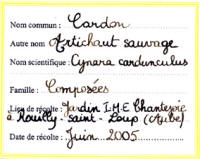 Nom commun : Cardon
Autre nom Artichaut sauvage
Nom scientifique : Cynara cardunculus
Famille : Composées
Lieu de récolte : Jardin I.M.E Chantejoie
à Rouilly-Saint-Loup (Aube)
Date de récolte : Juin 2005